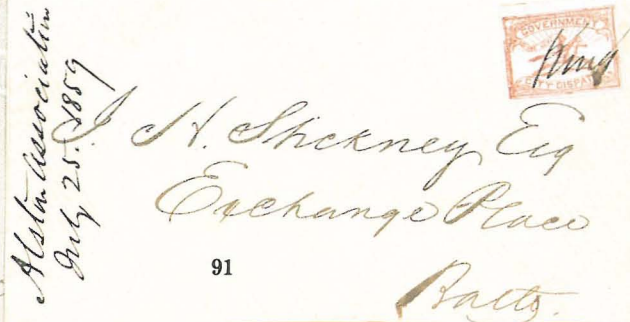 Alston Association
July 25. 1859
GOVERNMENT
CITY DISPATCH
King
J H. Stickney Esq
Exchange Place
91
Balto.